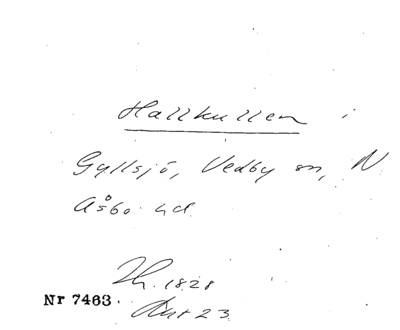 Hallkullen i
Gyllsjö, Vedby sn, N
Åsbo hd
Th. 1828
Nr 7463.
Aut 23